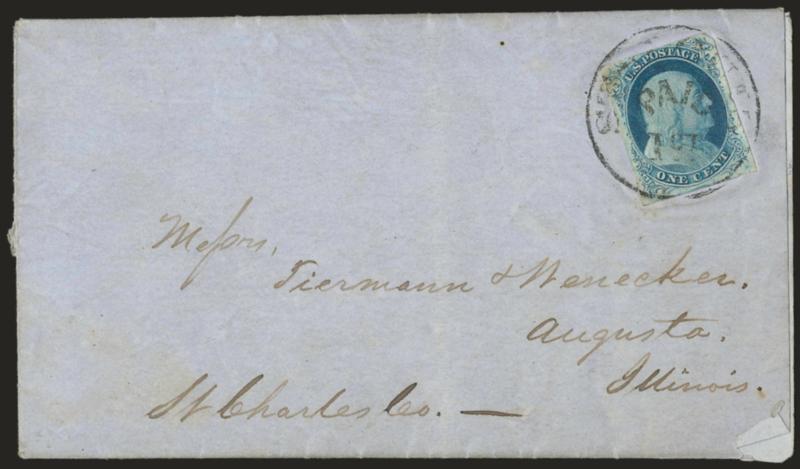 U.S. POSTAGE
PAID
1 CT
ONE CENT
Messrs,
Tiermann & Wenecker.
Augusta.
Illinois.
St Charles Co. —